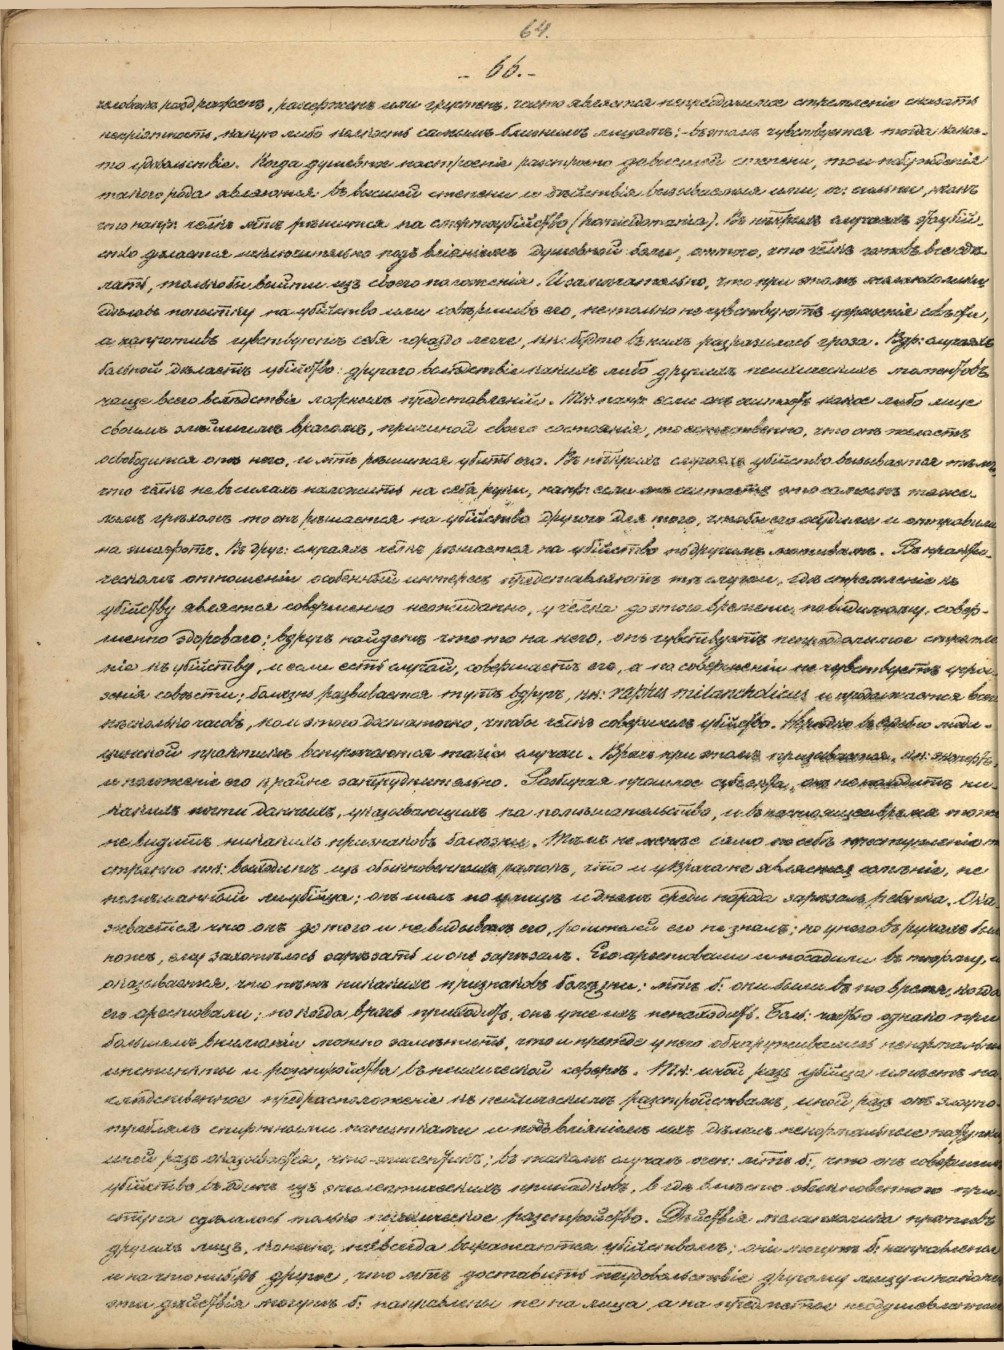 64.
- 66. -
человѣкъ раздраженъ, разсерженъ или грустенъ, часто является непреодолимое стремленіе сказать
непріятность, какую либо колкость самымъ близкимъ лицамъ; въ этомъ чувствуется тогда какое-
то удовольствіе. Когда душевное настроеніе разстроено до высшей степени, то и побужденія
такого рода являются въ высшей степени и дѣйствія вызываются или оч: сильны, такъ
что напр: члкъ м. тъ рѣшится на смертоубійство (homicidomania). Въ нѣкрыхъ случаяхъ убій-
ство дѣлается исключительно подъ вліяніемъ душевной боли, оттого, что члкъ готовъ все сдѣ-
лать, только бы выйти изъ своего положенія. И замѣчательно, что при этомъ меланхолики
сдѣлавъ попытку на убійство или совершивъ его, не только не чувствуютъ угрызенія совѣсти,
а напротивъ чувствуютъ себя гораздо легче, кк: будто въ нихъ разразилась гроза. Въ др: случаяхъ
больной дѣлаетъ убійство другого вслѣдствіе какихъ либо другихъ психическихъ моментовъ
чаще всего вслѣдствіе ложныхъ представленій. Тк: напр: если онъ считаетъ какое либо лице
своимъ злѣйшимъ врагомъ, причиной своего состоянія, то естественно, что онъ желаетъ
освободиться отъ него, и м. тъ рѣшиться убить его. Въ нѣкрыхъ случаяхъ убійство вызывается тѣмъ,
что члкъ не въ силахъ наложить на себя руки, напр: если онъ считаетъ это самымъ тяже-
лымъ грѣхомъ то онъ рѣшается на убійство другого для того, чтобы его осудили и отправили
на эшафотъ. Въ друг: случаяхъ члкъ рѣшается на убійство по другимъ мотивамъ. Въ практи-
ческомъ отношеніи особенный интересъ представляютъ тѣ случаи, гдѣ стремленіе къ
убійству является совершенно неожиданно, у члка до этого времени, повидимому, совер-
шенно здороваго; вдругъ найдетъ что то на него, онъ чувствуетъ непреодолимое стремле
ніе къ убійству, и если есть случай, совершаетъ его, а по совершеніи не чувствуетъ угры-
зенія совѣсти; болѣзнь развивается тутъ вдругъ, кк: raptus melancholicus и продолжается всего
нѣсколько часовъ, но и этого достаточно, чтобы члкъ совершилъ убійство. Нерѣдко въ судебно меди-
цинской практикѣ встрѣчаются такіе случаи. Врачъ при этомъ призывается, кк: экспертъ,
и положеніе его крайне затруднительно. Разбирая прошлое субъекта, онъ не находитъ ни-
какихъ почти данныхъ, указывающихъ на помѣшательство, и въ настоящее время тоже
не видитъ никакихъ признаковъ болѣзни. Тѣмъ не менѣе само по себѣ преступленіе
странно тк: выходитъ изъ обыкновенныхъ рамокъ, что и у врача не является сомнѣніе, не
помѣшанный ли убійца; онъ шелъ по улицѣ и днемъ среди народа зарѣзалъ ребенка. Ока-
зывается что онъ до того и не видывалъ его, родителей его не зналъ; но у него въ рукахъ былъ
ножъ, ему захотѣлось зарѣзать и онъ зарѣзалъ. Его арестовали и посадили въ тюрьму, и
оказывается, что нѣтъ никакихъ признаковъ болѣзни; м. тъ б: они были въ то время, когда
его арестовали; но когда врачъ приходитъ, онъ уже ихъ не находитъ. Больш: частью однако при
большемъ вниманіи можно замѣтить, что и прежде у него обнаруживались ненормальные
инстинкты и разстройства въ психической сферѣ. Тк: иной разъ убійца имѣетъ на-
слѣдственное предрасположеніе къ психическимъ разстройствамъ, иной разъ онъ злоупо-
треблялъ спиртными напитками и подъ вліяніемъ ихъ дѣлалъ ненормальные поступки
иной разъ оказывается, что эпилептикъ; въ такомъ случаѣ оч: м. тъ б:, что онъ совершилъ
убійство въ одинъ изъ эпилептическихъ припадковъ, гдѣ вмѣсто обыкновеннаго при
ступа сдѣлалось только психическое разстройство. Дѣйствія меланхолика противъ
другихъ лицъ, конечно, не всегда выражаются убійствомъ; они могутъ б: направлены
и на что нибудь другое, что м. тъ доставить неудовольствіе другому лицу и наконецъ
эти дѣйствія могутъ б: направлены не на лица, а на предметы неодушевленные